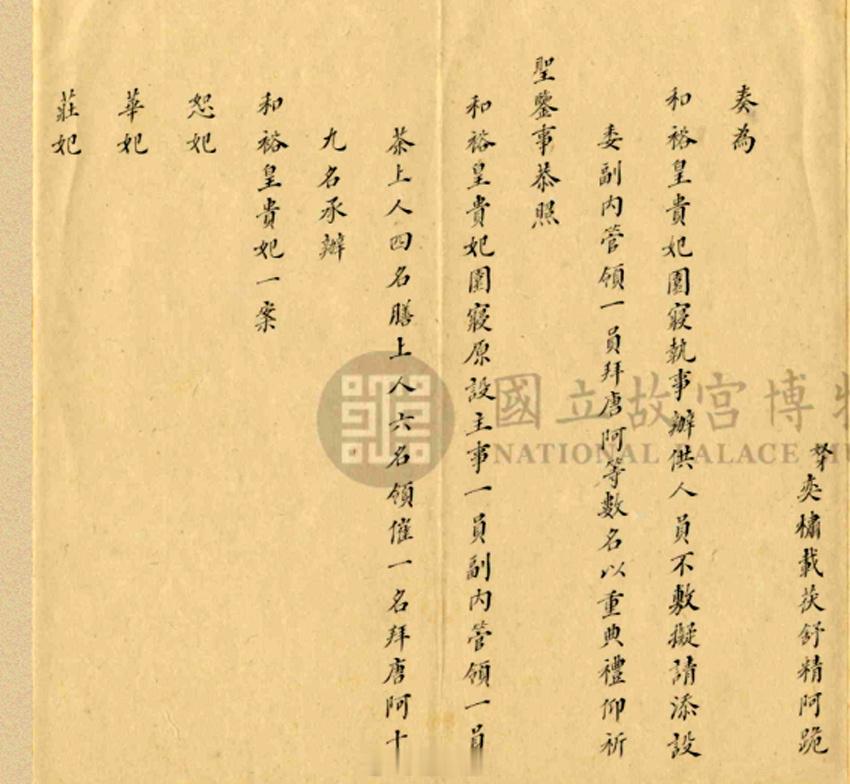 奴才奕橚載茯舒精阿跪
奏為
和裕皇貴妃園寢執事辦供人員不敷擬請添設
委副內管領一員拜唐阿等數名以重典禮仰祈
聖鑒事恭照
和裕皇貴妃園寢原設主事一員副內管領一員
茶上人四名膳上人六名領催一名拜唐阿十
九名承辦
和裕皇貴妃一案
恕妃
華妃
莊妃
國立故宮博物
NATIONAL PALACE MU